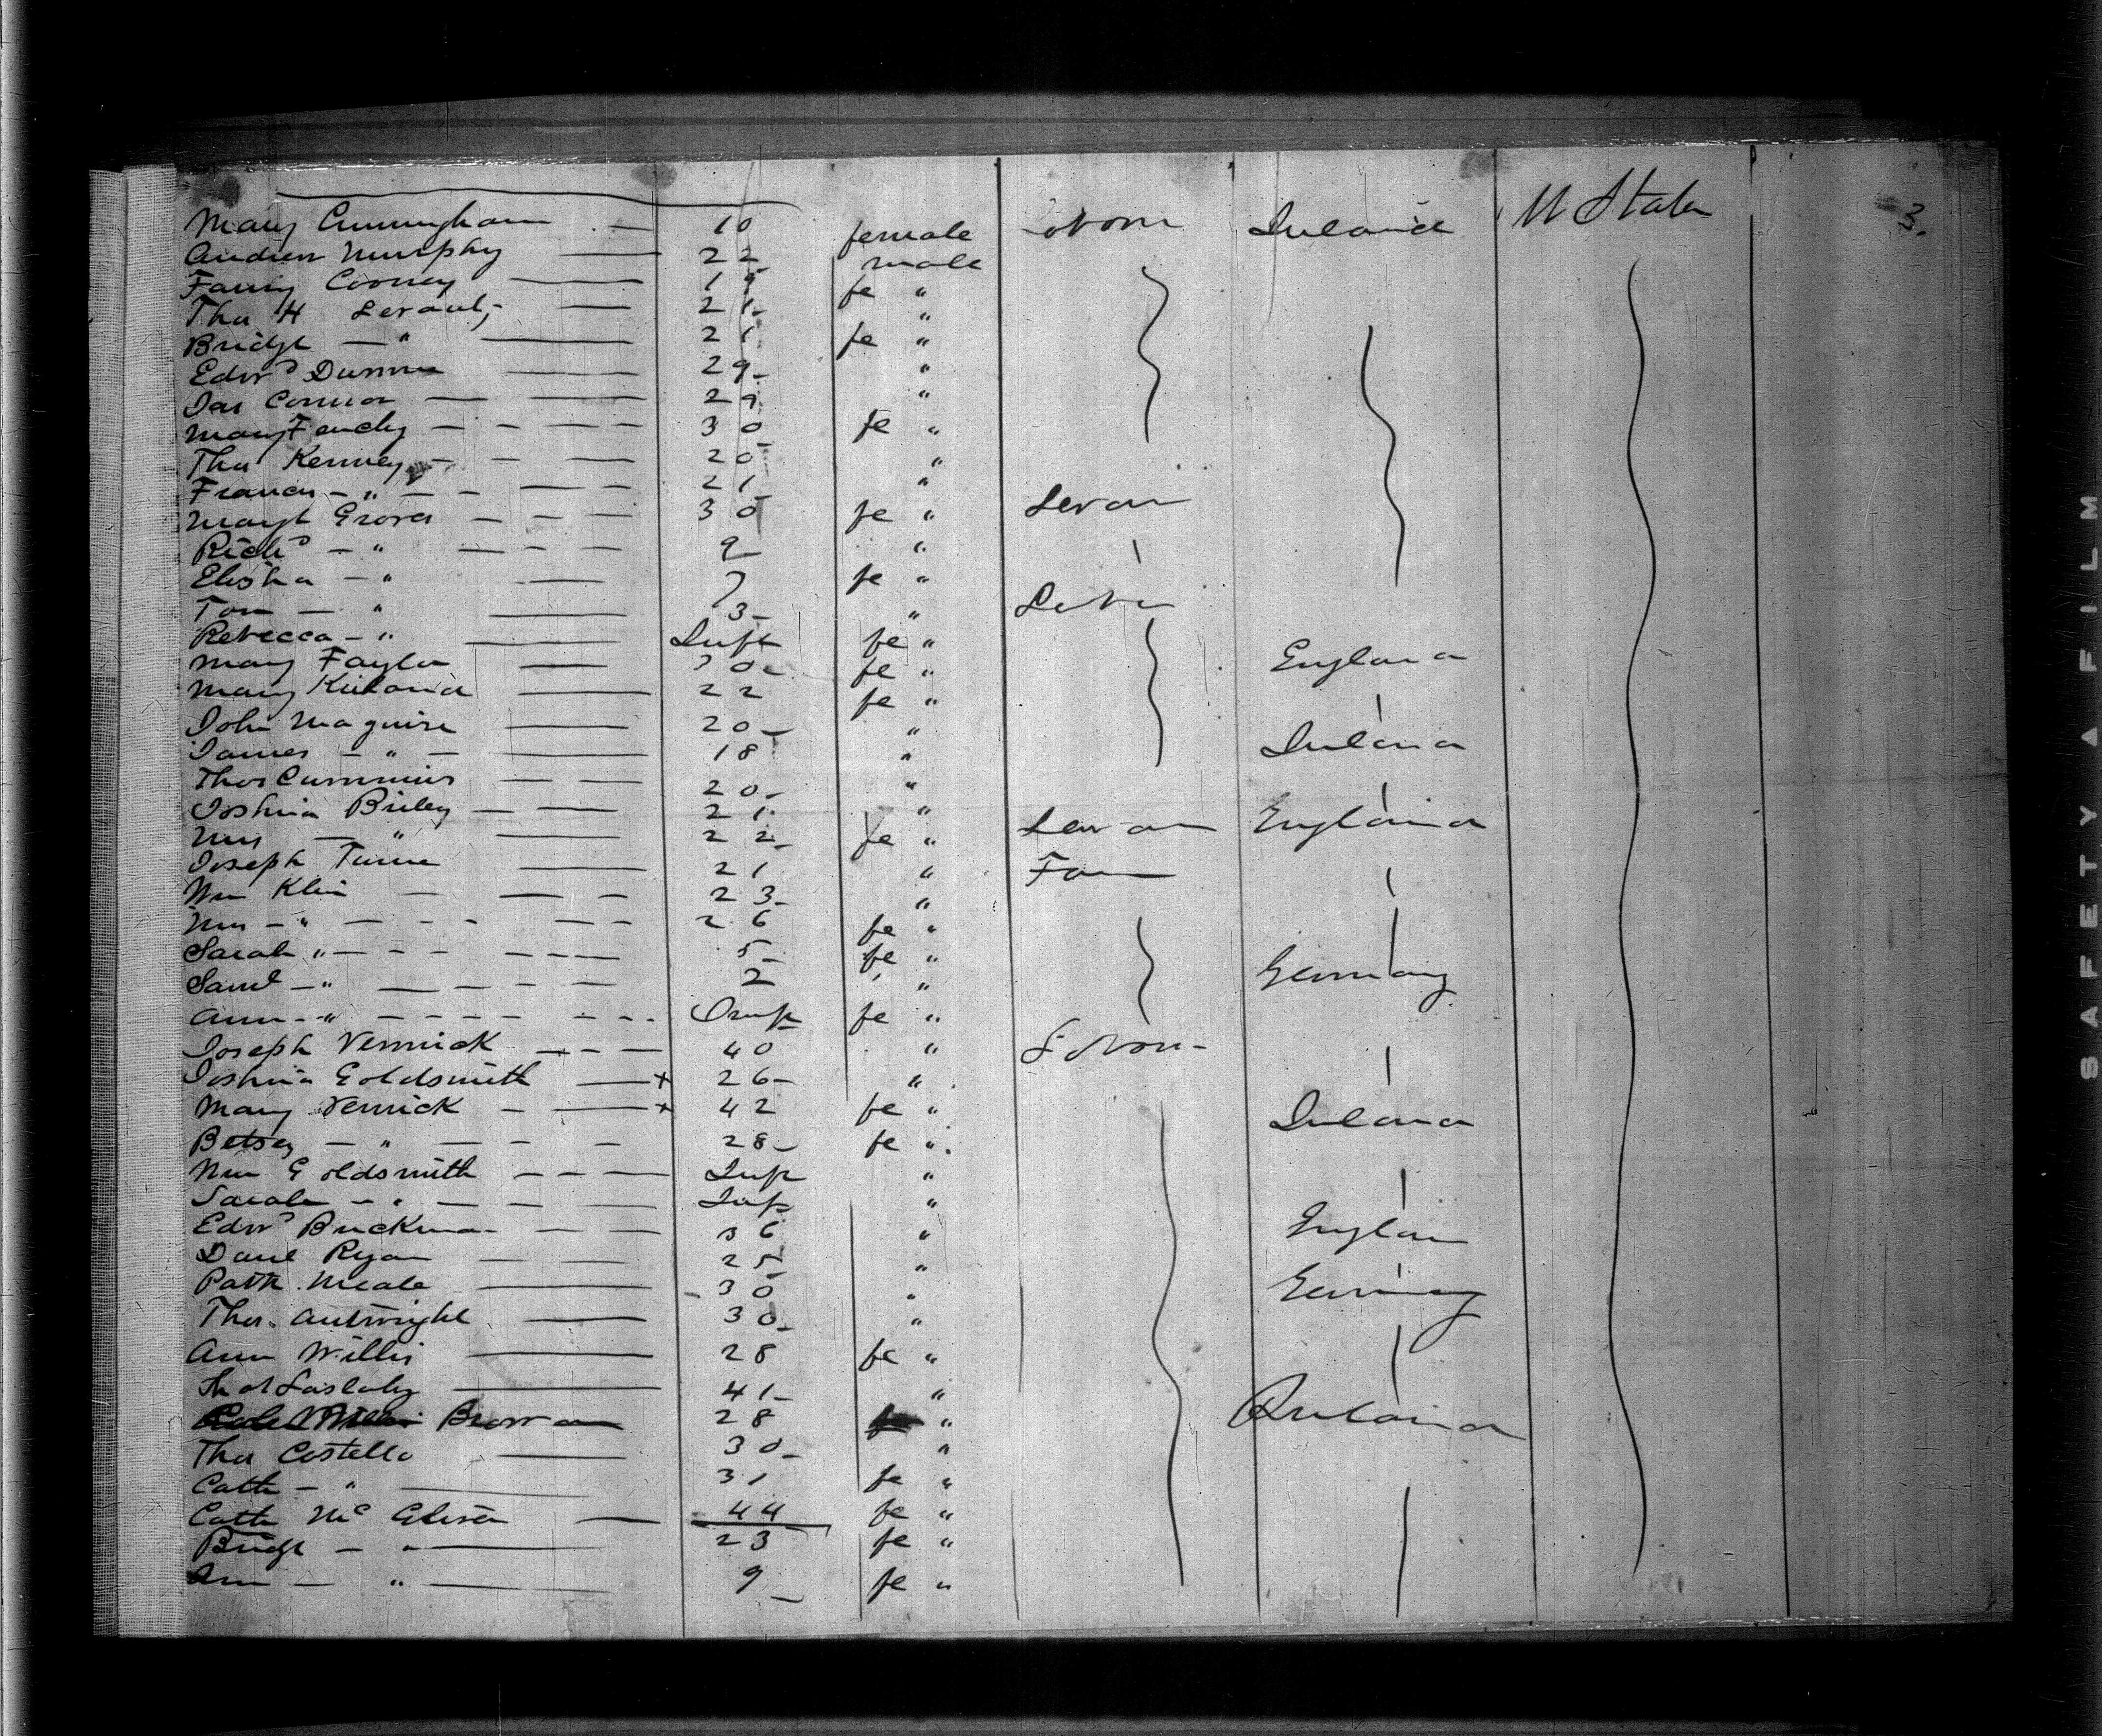 Mary Cunningham 10 female Ireland U States 3.
Andrew Murphy 22 male
Fanny Cooney 19 fe "
Thos H 21 "
Bridgt " 21 fe "
Edwd Dunne 29 "
Jas Connor 29 "
Mary 30 fe "
Thos Kenney 20 "
Francis " 21 "
Margt Grover 30 fe "
Richd " 9 "
Elisha " 7 fe "
Tom " 3 "
Rebecca " Inft fe "
Mary Taylor 30 fe " England
Mary 22 fe "
John Maguire 20 " Ireland
James " 18 "
Thos Cummins 20 "
Joshua Briley 21 " England
Mrs " 22 fe "
Joseph Turne 21 " Farm
Wm Klein 23 "
Mrs " 26 fe "
Sarah " 5 fe " Germany
Saml " 2 "
Ann " Inf fe "
Joseph Vernick 40 "
Joshua Goldsmith x 26 "
Mary Vernick x 42 fe " Ireland
Betsey " 28 fe "
Wm Goldsmith Inf "
Sarah " Inf "
Edwd Buckman 36 " England
Danl Ryan 25 "
Patk Meale 30 " Germany
Thos. 30 "
Ann Willis 28 fe "
Thos 41 "
Brown 28 " Ireland
Thos Costello 30 "
Cath " 31 fe "
Cath Mc 44 fe "
Bridgt " 23 fe "
Ann " 9 fe "
SAFETY A FILM